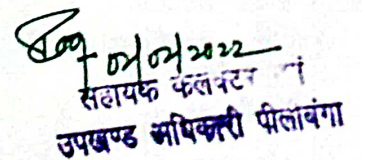 02/02/2022
सहायक कलक्टर
उपखण्ड अधिकारी पीलीबंगा